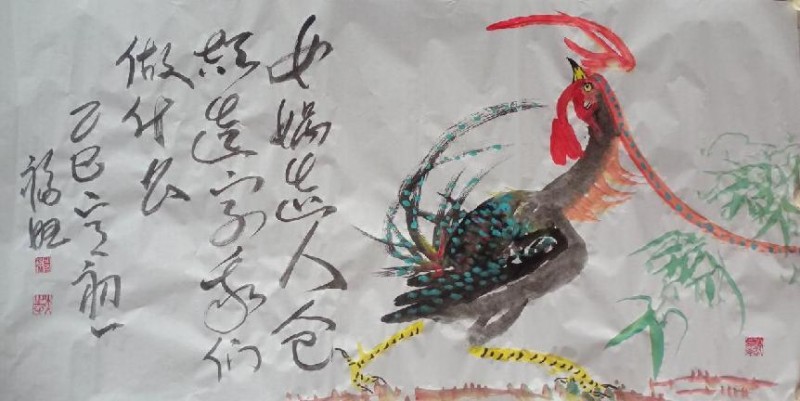 女娲造人仓
颉造字我们
做什么
乙巳六月初一
福旺